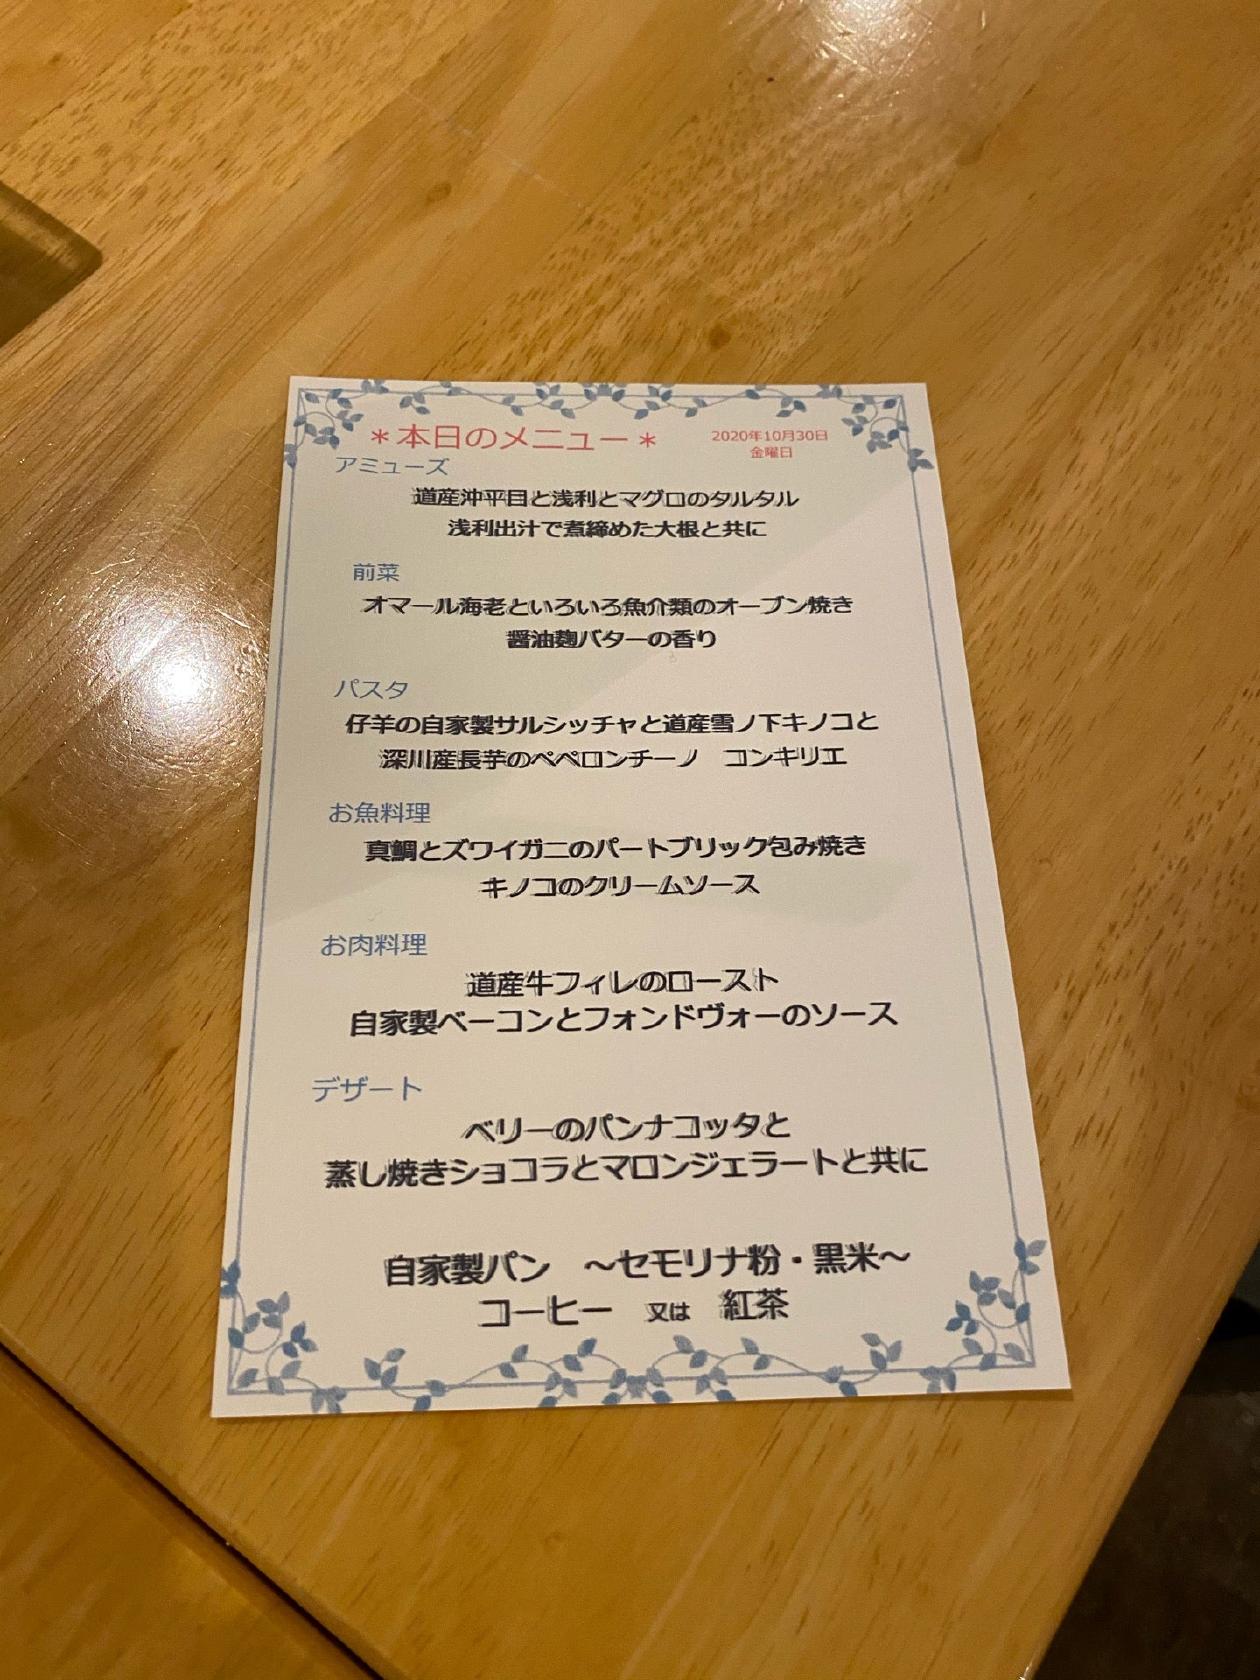 ＊本日のメニュー＊
2020年10月30日
金曜日
アミューズ
道産沖平目と浅利とマグロのタルタル
浅利出汁で煮締めた大根と共に
前菜
オマール海老といろいろ魚介類のオーブン焼き
醤油麹バターの香り
パスタ
仔羊の自家製サルシッチャと道産雪ノ下キノコと
深川産長芋のペペロンチーノ　コンキリエ
お魚料理
真鯛とズワイガニのパートブリック包み焼き
キノコのクリームソース
お肉料理
道産牛フィレのロースト
自家製ベーコンとフォンドヴォーのソース
デザート
ベリーのパンナコッタと
蒸し焼きショコラとマロンジェラートと共に
自家製パン　～セモリナ粉・黒米～
コーヒー　又は　紅茶